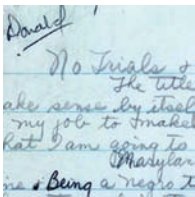 Donald
No Trials &
The title
ake sense by itsel
my job to make
hat I am going to
Marylan
Being a negro